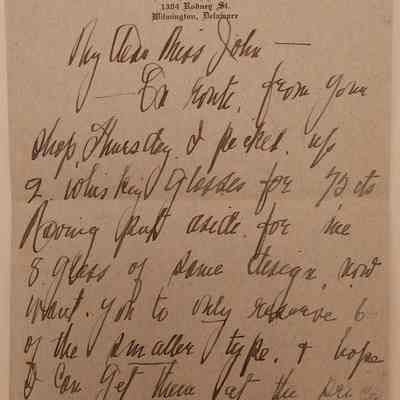 1304 Rodney St.
Wilmington, Delaware
My Dear Miss John —
— En route, from your
shop, Thursday I picked up
2 whiskey glasses for 75 cts
Having put aside for me
8 glass of same design, now
want you to only reserve 6
of the smaller type, & hope
I can get them at the price